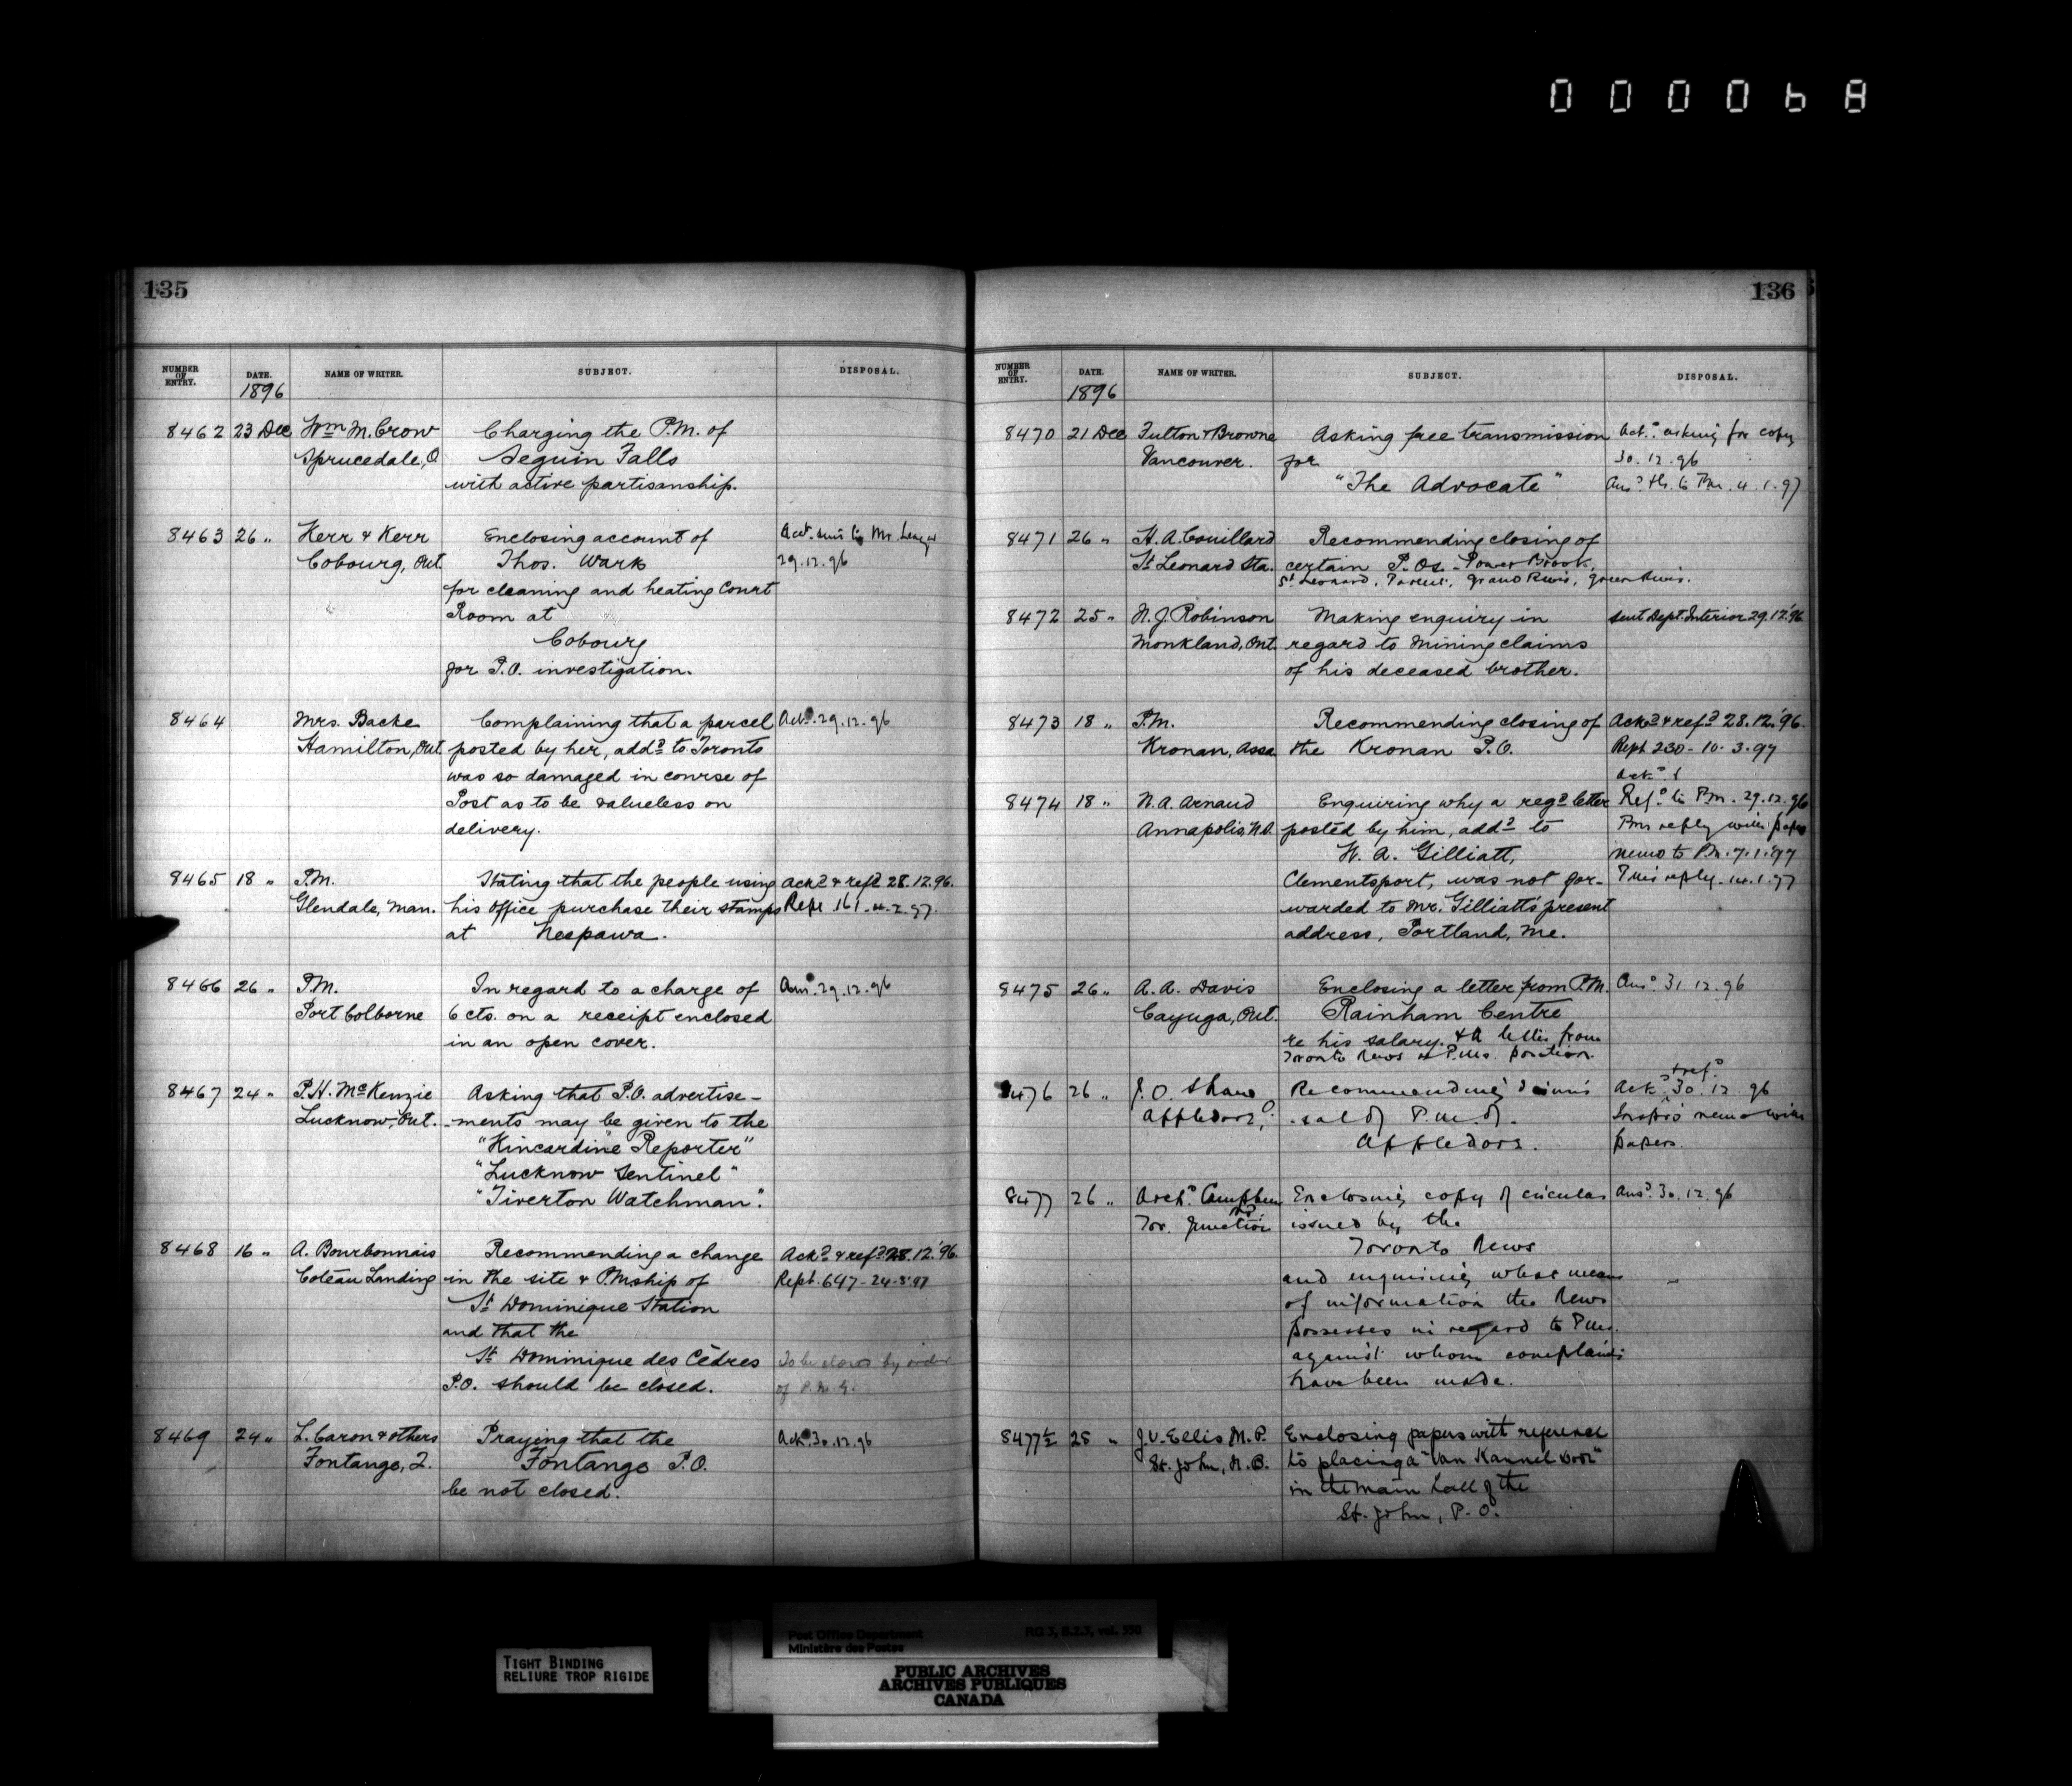 000068
135
NUMBER OF ENTRY. DATE. NAME OF WRITER. SUBJECT. DISPOSAL.
1896
8462 23 Dec Wm M. Crow Charging the P.M. of
Sprucedale, O Seguin Falls
with active partisanship.
8463 26 " Kerr & Kerr Enclosing account of Acct. sent to Mr.
Cobourg, Ont. Thos. Wark 29.12.96
for cleaning and heating Court
Room at
Cobourg
for P.O. investigation.
8464 Mrs. Backe Complaining that a parcel Ackd. 29.12.96
Hamilton, Ont. posted by her, addd to Toronto
was so damaged in course of
Post as to be valueless on
delivery.
8465 18 " P.M. Stating that the people using Ackd & refd 28.12.96.
Glendale, Man. his office purchase their stamps Rept 161 - 4.2.97.
at Neepawa.
8466 26 " P.M. In regard to a charge of Ansd. 29.12.96
Port Colborne 6 cts. on a receipt enclosed
in an open cover.
8467 24 " P.H. McKenzie Asking that P.O. advertise-
Lucknow, Ont. -ments may be given to the
"Kincardine Reporter"
"Lucknow Sentinel"
"Tiverton Watchman".
8468 16 " A. Bourbonnais Recommending a change Ackd & refd 28.12.'96.
Coteau Landing in the site & P.Mship of Rept. 647 - 24-3-'97
St Dominique Station
and that the
St Dominique des Cèdres To be closed by order
P.O. should be closed. of P.M.G.
8469 24 " L. Caron & others Praying that the Ackd. 30.12.96
Fontange, Q. Fontange P.O.
be not closed.
136
NUMBER OF ENTRY. DATE. NAME OF WRITER. SUBJECT. DISPOSAL.
1896
8470 21 Dec Fulton & Browne Asking free transmission Ackd. asking for copy
Vancouver. for 30.12.96
"The Advocate" Ansd to P.M. 4.1.97
8471 26 " H.A. Couillard Recommending closing of
St Leonard Sta. certain P.Os. - Power Brook,
St Leonard, Parent, Grand River, Green River.
8472 25 " N.J. Robinson Making enquiry in sent Dept. Interior 29.12.'96
Monkland, Ont. regard to Mining claims
of his deceased brother.
8473 18 " P.M. Recommending closing of Ackd & refd 28.12.'96.
Kronan, Assa the Kronan P.O. Rept 230 - 10.3.97
Ackd. &
8474 18 " N.A. Arnaud Enquiring why a regd letter Refd to P.M. 29.12.96
Annapolis, N.S. posted by him, addd to P.M.s reply with papers
W.A. Gilliatt, memo to P.M. 7.1.'97
Clementsport, was not for- P.M.'s reply - 14.1.97
warded to Mr. Gilliatt's present
address, Portland, Me.
8475 26 " A.A. Davis Enclosing a letter from P.M. Ansd. 31.12.96
Cayuga, Ont. Rainham Centre
re his salary. & A letter from
Toronto News re P.Ms. position.
& refd
8476 26 " J.O. Shaw Recommending dismis Ackd. 30.12.96
Appledore, O. -sal of P.M. of Inspr's memo with
Appledore. papers.
8477 26 " Archd Campbell Enclosing copy of circular Ansd. 30.12.96
MP
Tor. Junction issued by the
Toronto News
and enquiring what means
of information the News
possesses in regard to P.Ms.
against whom complaints
have been made.
8477½ 28 " J.V. Ellis M.P. Enclosing papers with reference
St. John, N.B. to placing a "Van Kannel Door"
in the main hall of the
St. John, P.O.
TIGHT BINDING
RELIURE TROP RIGIDE
Post Office Department RG 3, B.2.3, vol. 550
Ministère des Postes
PUBLIC ARCHIVES
ARCHIVES PUBLIQUES
CANADA